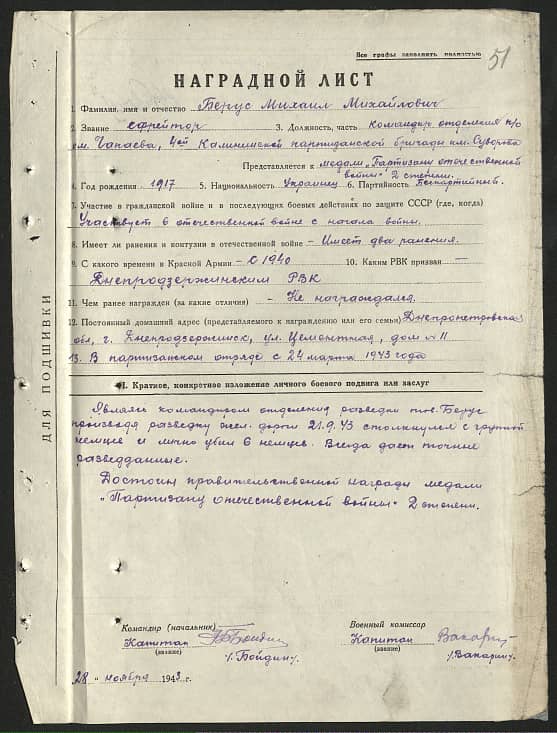 Все графы заполнить полностью
51
НАГРАДНОЙ ЛИСТ
1. Фамилия, имя и отчество Берус Михаил Михайлович
2. Звание ефрейтор 3. Должность, часть командир отделения п/о
им. Чапаева, 4ой Калининской партизанской бригады им. Суворова
Представляется к медали "Партизану отечественной
войны" 2 степени.
4. Год рождения 1917 5. Национальность Украинец 6. Партийность Беспартийный.
7. Участие в гражданской войне и в последующих боевых действиях по защите СССР (где, когда)
Участвует в отечественной войне с начала войны.
8. Имеет ли ранения и контузии в отечественной войне – Имеет два ранения.
9. С какого времени в Красной Армии – С 1940 10. Каким РВК призван —
Днепродзержинским РВК
11. Чем ранее награжден (за какие отличия) – Не награждался.
12. Постоянный домашний адрес (представляемого к награждению или его семьи) Днепропетровская
обл, г. Днепродзержинск, ул. Цементная, дом № 11
13. В партизанском отряде с 24 марта 1943 года
I. Краткое, конкретное изложение личного боевого подвига или заслуг
Являясь командиром отделения разведки тов. Берус
произведя разведку жел. дороги 21.9.43 столкнулся с группой
немцев и лично убил 6 немцев. Всегда дает точные
разведданные.
Достоин правительственной награды медали
"Партизану отечественной войны" 2 степени.
ДЛЯ ПОДШИВКИ
Командир (начальник)
Капитан
(звание)
/Бойдин/.
Военный комиссар
Капитан
(звание)
/Вакарин/.
28 " ноября 1943 г.